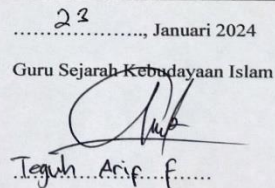 23, Januari 2024
Guru Sejarah Kebudayaan Islam
Teguh Arif F